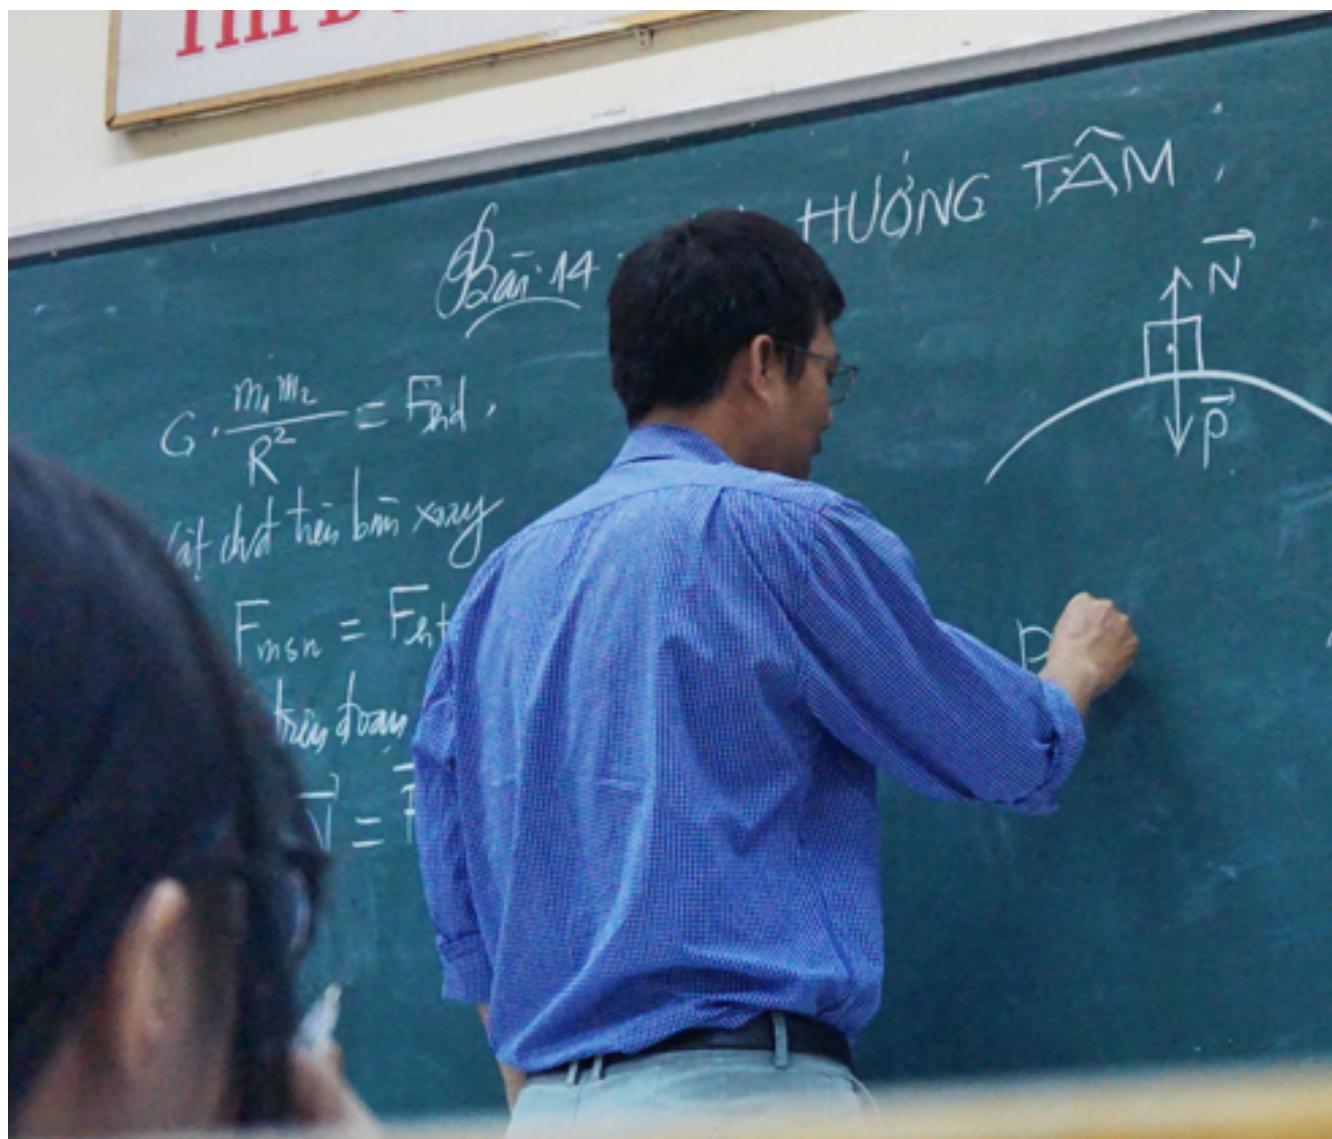 Bài 14 HƯỚNG TÂM
G . m₁ m₂ / R² = Fhd .
vật đặt trên bàn xoay
Fmsn = Fht
trên đoạn
N =
N
P
P